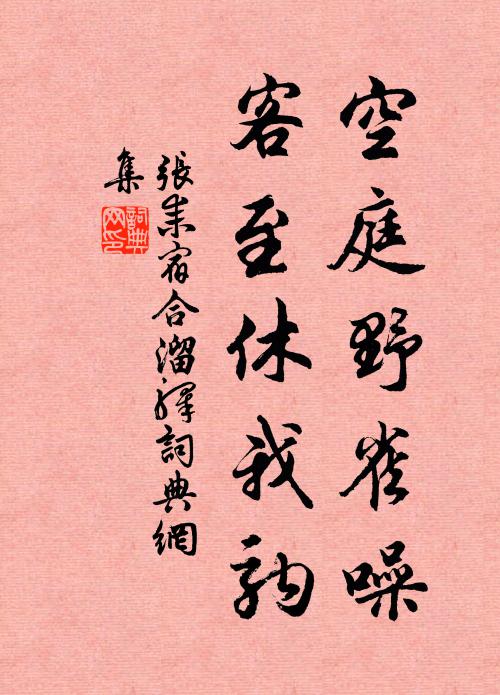 空庭野雀噪
客至休我駒
張耒宿合溜驛詞典網
集
詞典網印